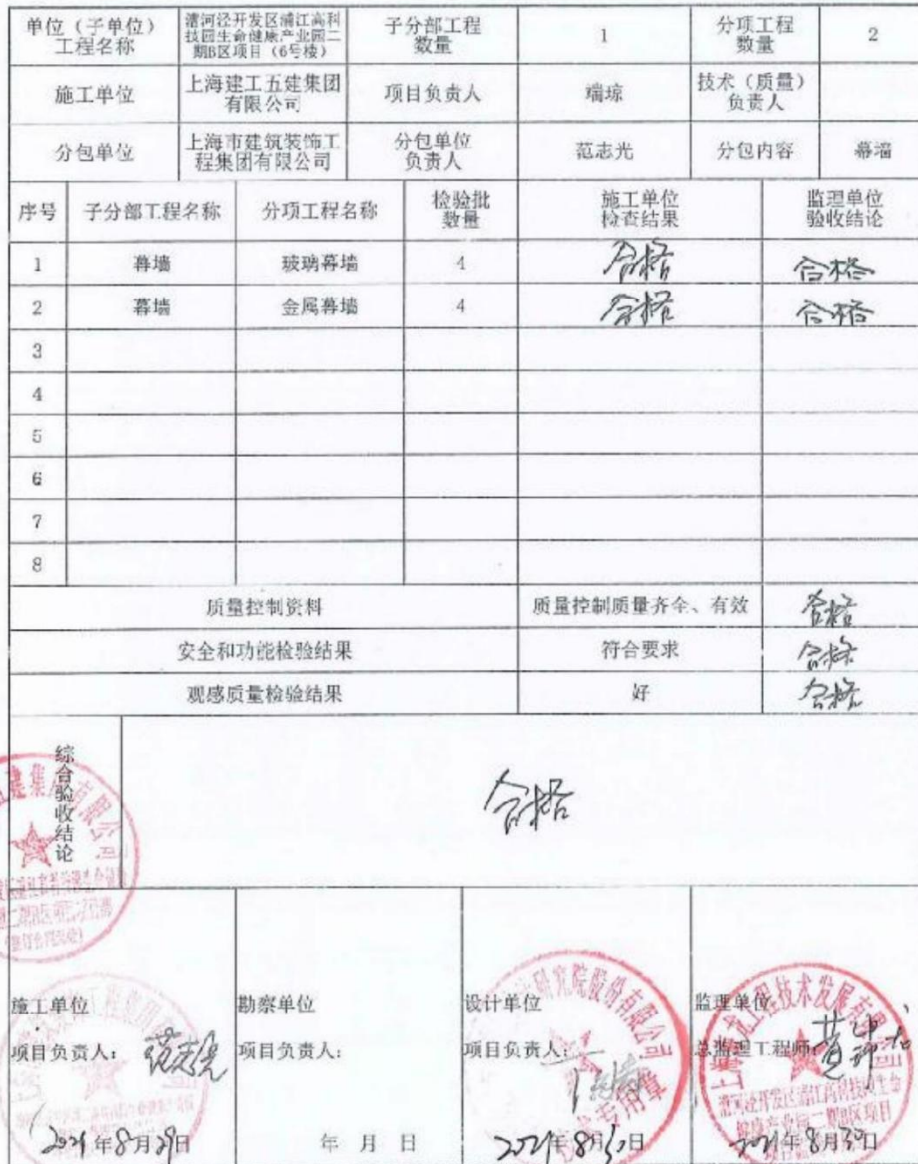 单位（子单位）
工程名称
漕河泾开发区浦江高科
技园生命健康产业园二
期B区项目（6号楼）
子分部工程
数量
1
分项工程
数量
2
施工单位
上海建工五建集团
有限公司
项目负责人
端琼
技术（质量）
负责人
分包单位
上海市建筑装饰工
程集团有限公司
分包单位
负责人
范志光
分包内容
幕墙
序号
子分部工程名称
分项工程名称
检验批
数量
施工单位
检查结果
监理单位
验收结论
1 幕墙 玻璃幕墙 4 合格 合格
2 幕墙 金属幕墙 4 合格 合格
3
4
5
6
7
8
质量控制资料 质量控制质量齐全、有效 合格
安全和功能检验结果 符合要求 合格
观感质量检验结果 好 合格
综合验收结论
合格
施工单位
项目负责人：范志光
2021年8月29日
勘察单位
项目负责人：
年 月 日
设计单位
项目负责人：
2021年8月30日
研究院股份有限公司
专用章
监理单位
总监理工程师：
2021年8月30日
工程技术发展有限公司
漕河泾开发区浦江高科技园生命
健康产业园二期B区项目